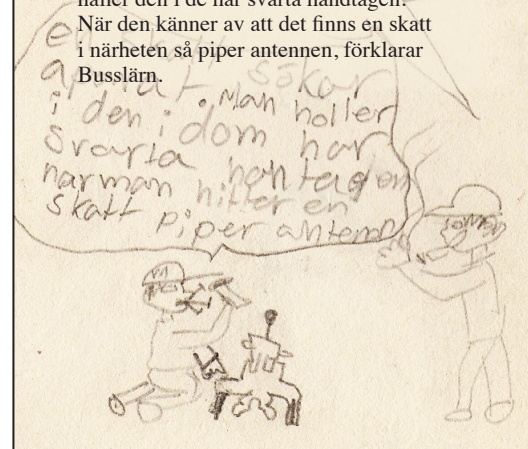 håller den i de här svarta handtagen.
När den känner av att det finns en skatt
i närheten så piper antennen, förklarar
Busslärn.
en skatt sökar
aparat. Man holler
i den i dom har
svarta hantagen
narman hitter en
skatt piper antenn